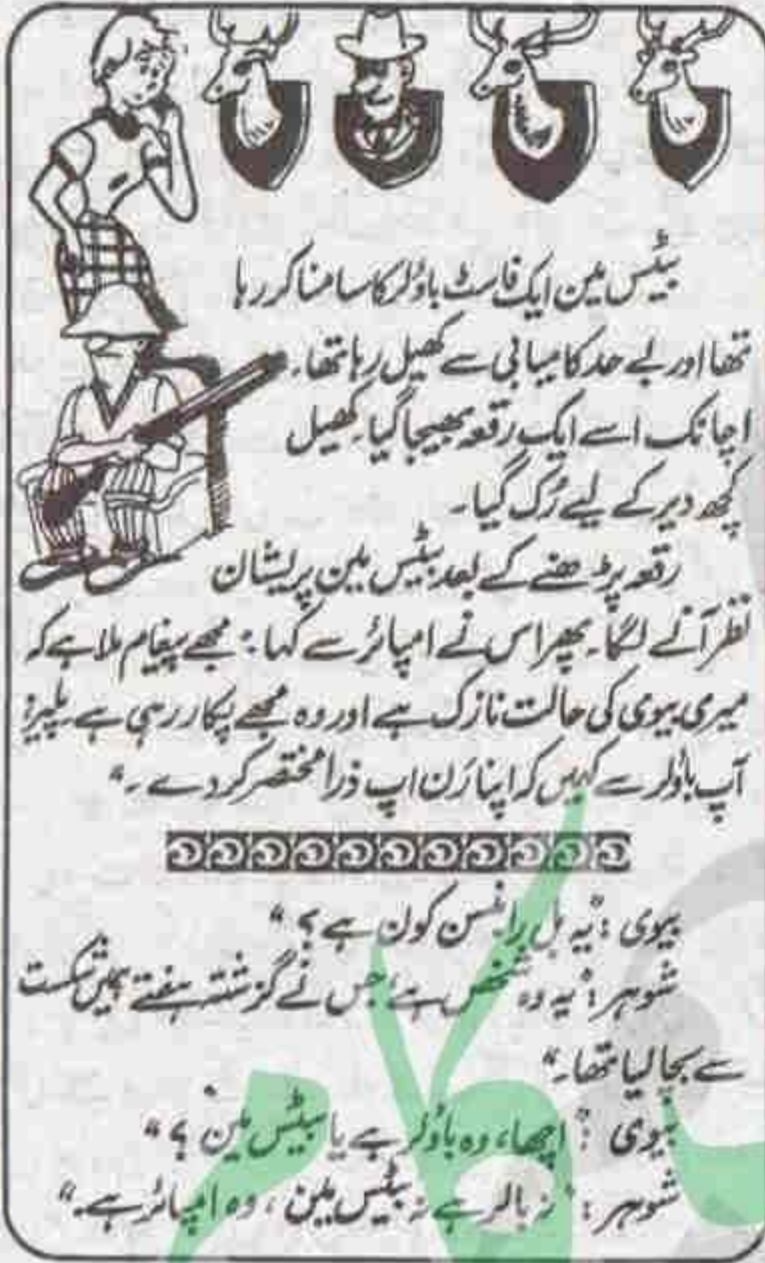 بیٹس مین ایک فاسٹ باؤلر کا سامنا کر رہا
تھا اور بے حد کامیابی سے کھیل رہا تھا۔
اچانک اسے ایک رقعہ بھیجا گیا۔ کھیل
کچھ دیر کے لیے رُک گیا۔
رقعہ پڑھنے کے بعد بیٹس مین پریشان
نظر آنے لگا۔ پھر اس نے امپائر سے کہا: "مجھے پیغام ملا ہے کہ
میری بیوی کی حالت نازک ہے اور وہ مجھے پکار رہی ہے۔ پلیز
آپ باؤلر سے کہیں کہ اپنا رَن اپ ذرا مختصر کر دے۔"
بیوی: "یہ بل رابنسن کون ہے؟"
شوہر: "یہ وہ شخص ہے جس نے گزشتہ ہفتے ہمیں شکست
سے بچا لیا تھا۔"
بیوی: "اچھا، وہ باؤلر ہے یا بیٹس مین؟"
شوہر: "نہ بالر ہے نہ بیٹس مین، وہ امپائر ہے۔"